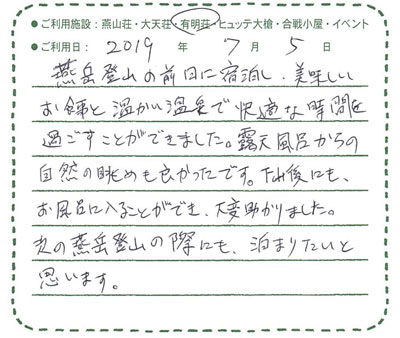 ●ご利用施設：燕山荘・大天荘・有明荘・ヒュッテ大槍・合戦小屋・イベント
●ご利用日： 2019 年 7 月 5 日
燕岳登山の前日に宿泊し、美味しい
お食事と、温かい温泉で快適な時間を
過ごすことができました。露天風呂からの
自然の眺めも良かったです。下山後にも、
お風呂に入ることができ、大変助かりました。
次の燕岳登山の際にも、泊まりたいと
思います。